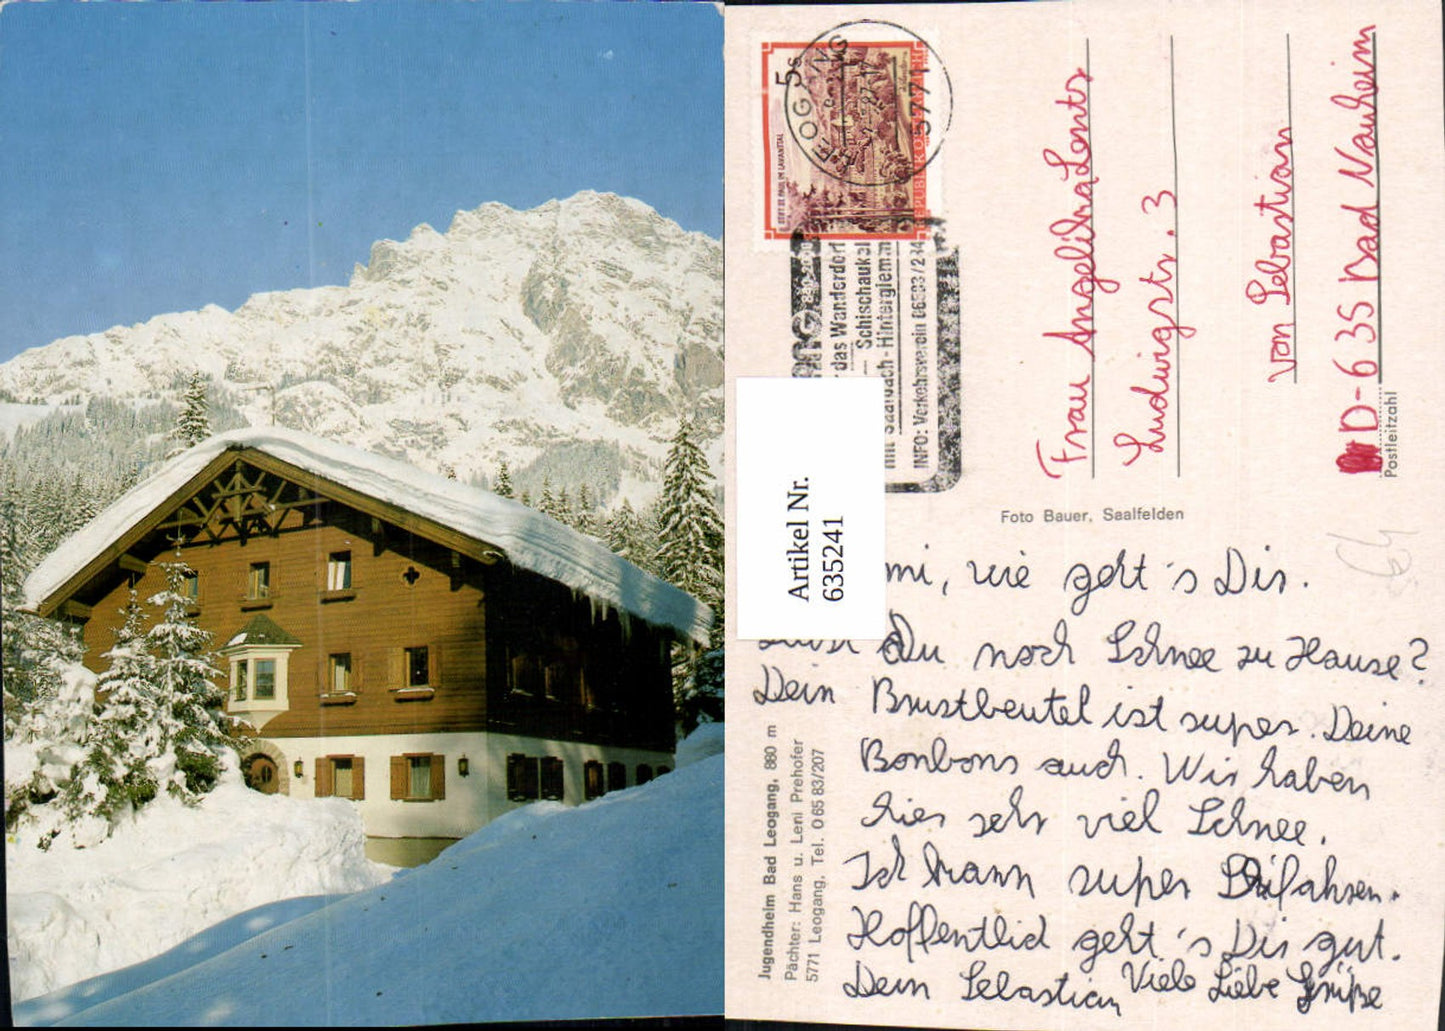 5s
LEOGANG
5771
STIFT ST. PAUL IM LAVANTTAL
REPUBLIK ÖSTERREICH
880-2000
das Wanderdorf
Schischaukel
mit Saalbach-Hinterglemm
INFO: Verkehrsverein 06583/234
Artikel Nr.
635241
Frau Angelika Lentz
Ludwigstr. 3
von Sebastian
D-635 Bad Nauheim
Postleitzahl
Foto Bauer, Saalfelden
64
mi, wie geht's Dir.
Du noch Schnee zu Hause?
Dein Brustbeutel ist super. Deine
Bonbons auch. Wir haben
hier sehr viel Schnee.
Ich kann super Skifahren.
Hoffentlich geht's Dir gut.
Dein Sebastian Viele Liebe Grüße
Jugendheim Bad Leogang, 880 m
Pächter: Hans u. Leni Prehofer
5771 Leogang, Tel. 0 65 83/207